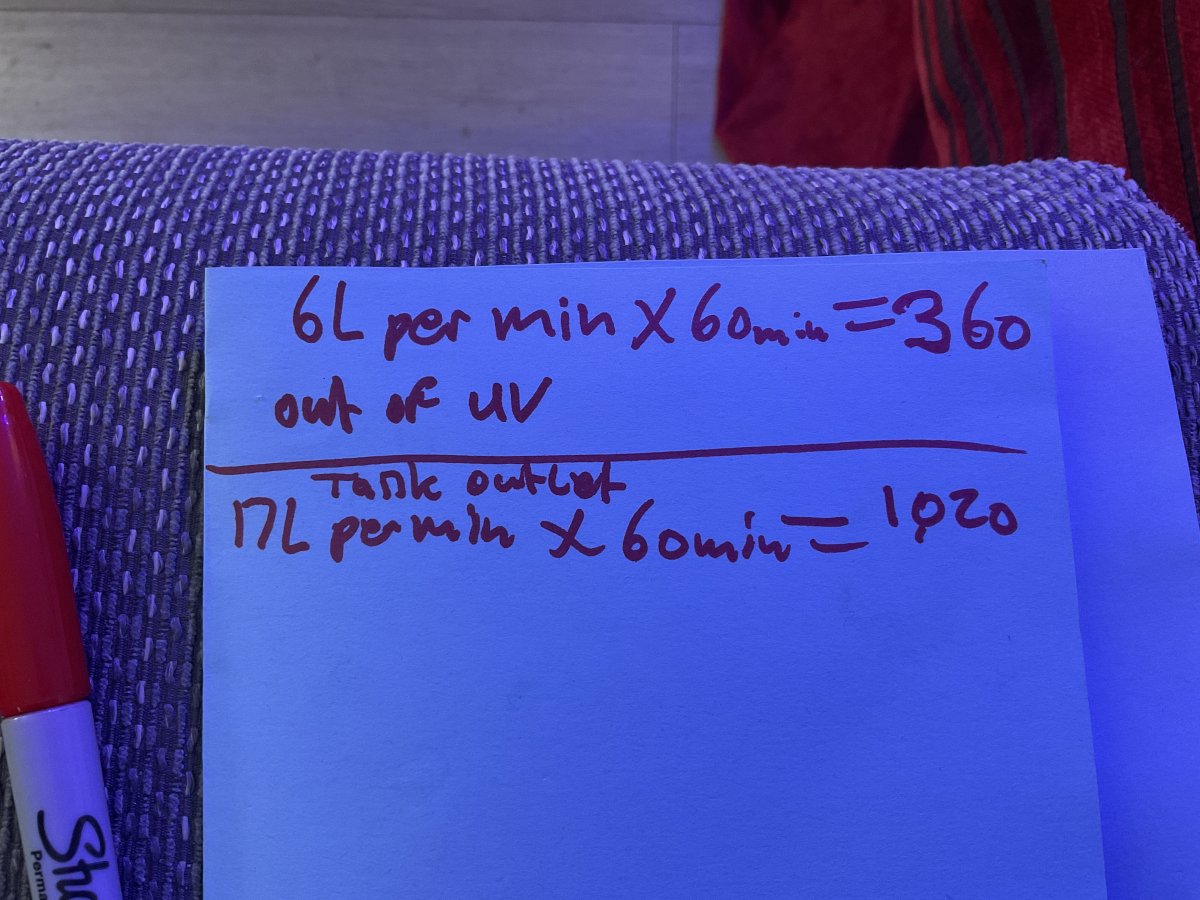 6L per min X 60min = 360
out of UV
Tank outlet
17L per min X 60min = 1,020